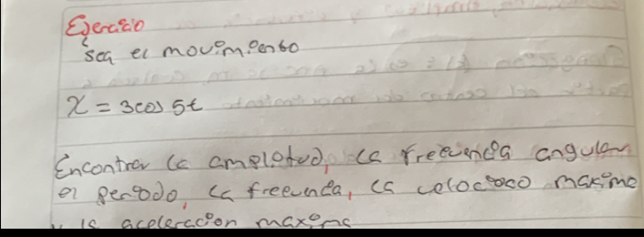 Ejercicio
Sea el movimiento
x = 3cos 5t
Encontrar la amplitud, la frecuencia angular
el periodo, la frecuencia, la velocidad maxima
y la aceleracion maxima